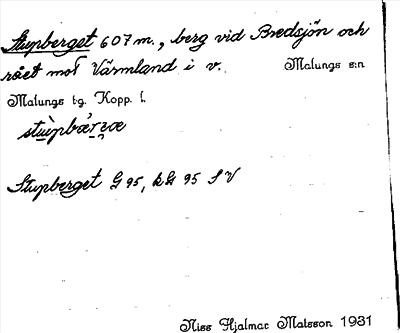 Stupberget 607 m., berg vid Bredsjön och
rået mot Värmland i v. Malungs sn
Malungs tg. Kopp. l.
Stupberget G 95, kG 95 S V
Nils Hjalmar Matsson 1931